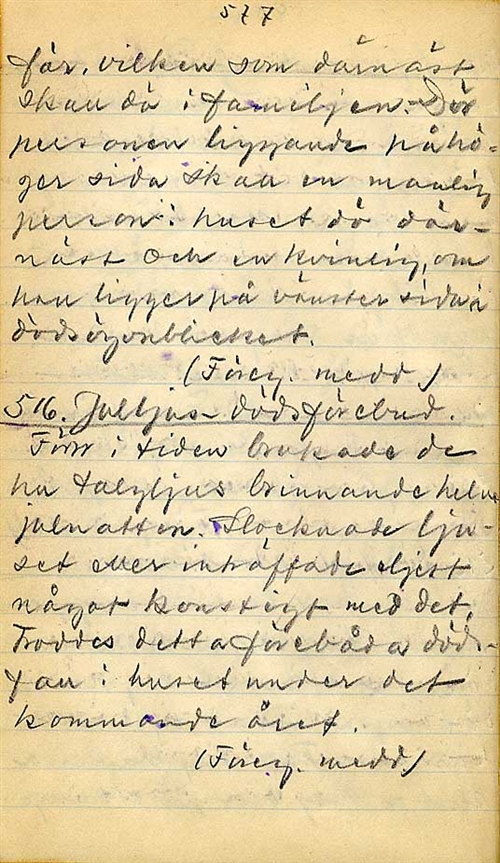 577
för, vilken som därnäst
skall dö i familjen. Dör
personen liggande på hö-
ger sida skall en manlig
person i huset dö där-
näst och en kvinlig, om
han ligger på vänster sida i
dödsögonblicket.
(Föreg. medd.)
516. Julljus - dödsförebud.
Förr i tiden brukade de
ha talgljus brinnande hela
julnatten. Slocknade lju-
set eller inträffade eljest
något konstigt med det,
troddes detta förebåda döds-
fall i huset under det
kommande året.
(Föreg. medd.)